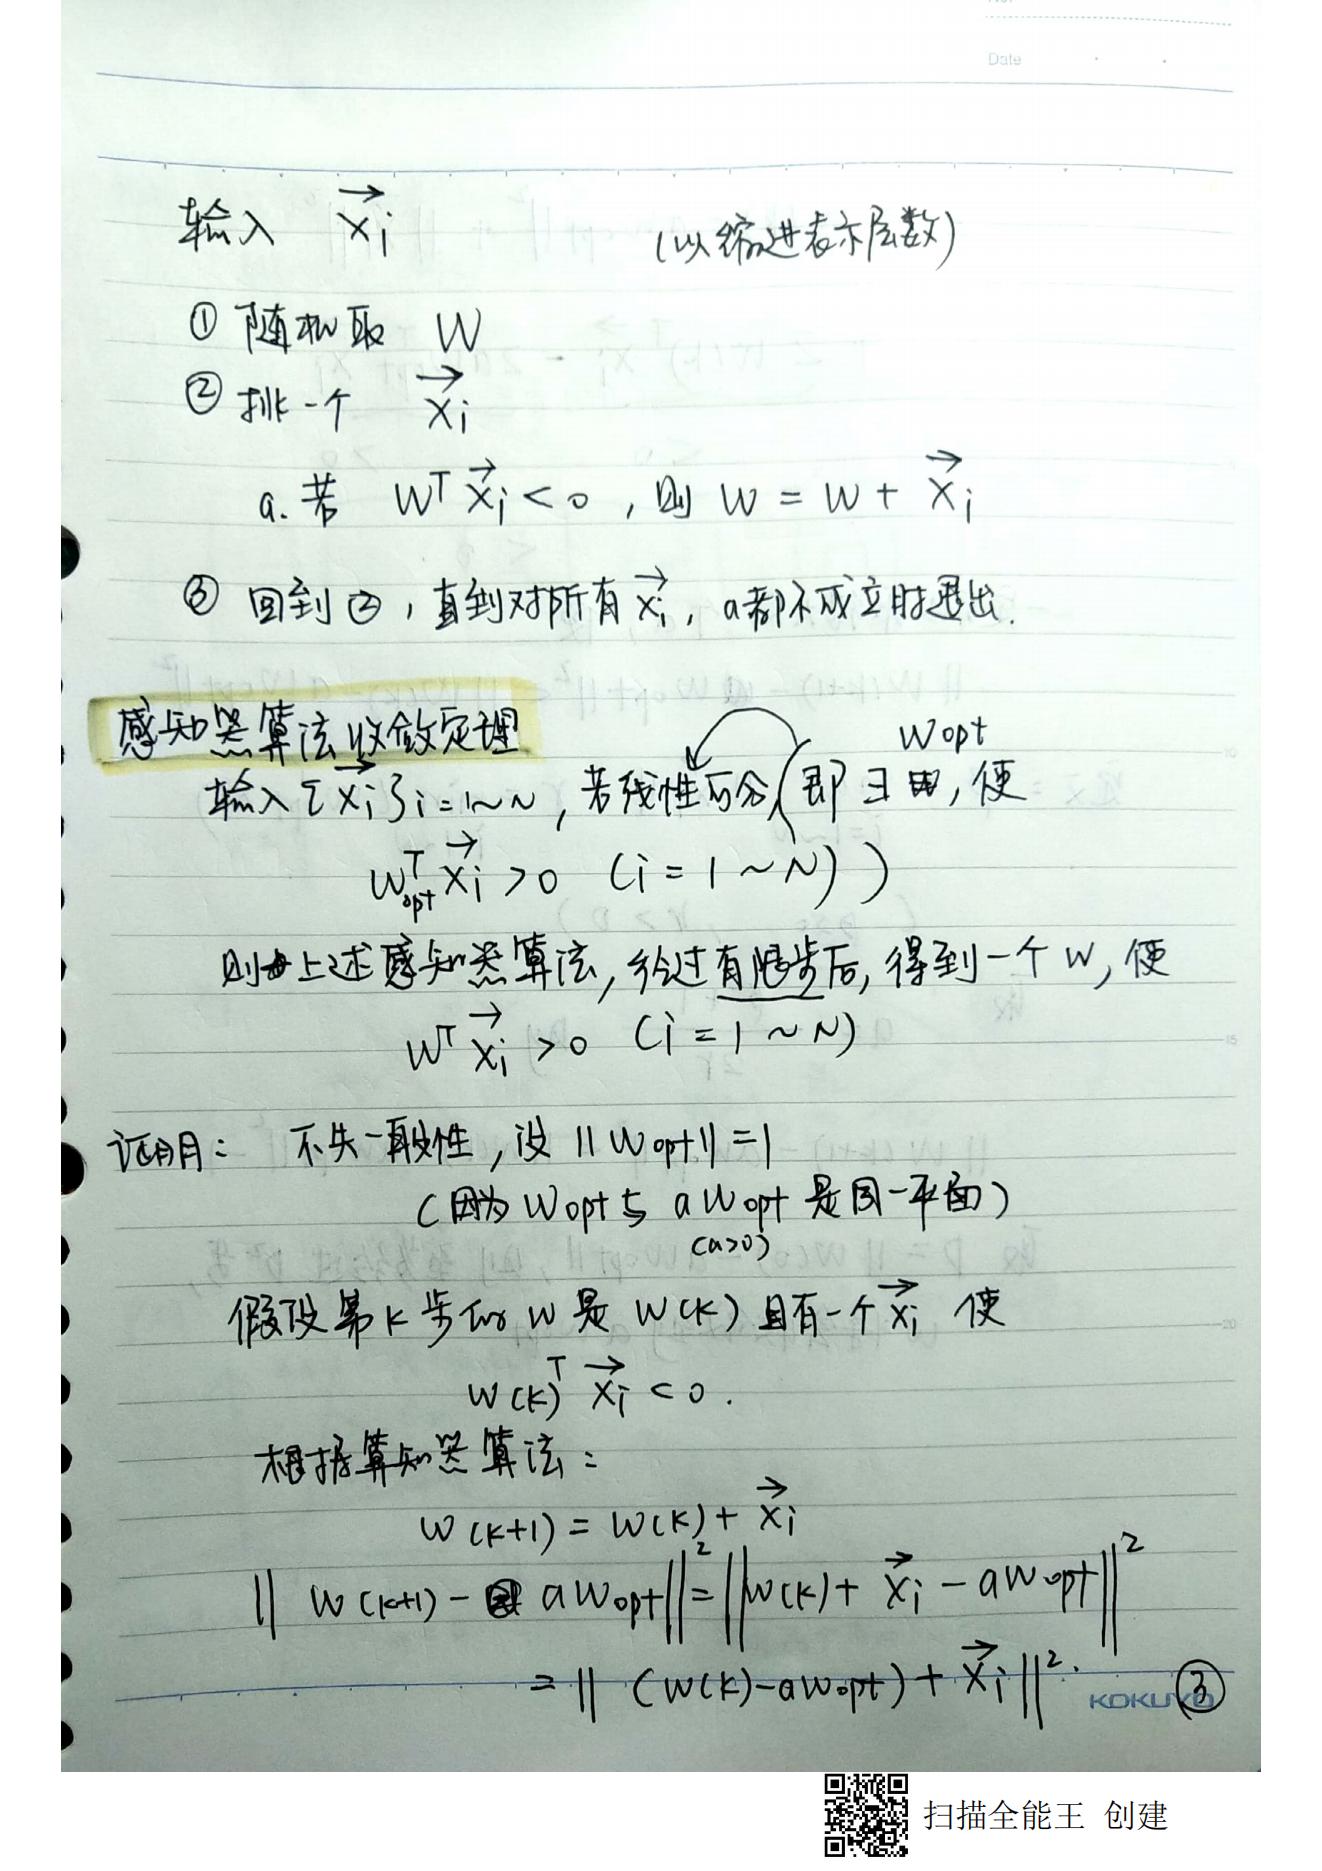 Date
输入 $\vec{x_i}$ (以缩进表示层数)
① 随机取 W
② 挑一个 $\vec{x_i}$
a. 若 $W^T \vec{x_i} < 0$, 则 $W = W + \vec{x_i}$
③ 回到②, 直到对所有 $\vec{x_i}$, a都不成立时退出.
感知器算法收敛定理
$W_{opt}$
输入 $\{\vec{x_i}\}_{i=1\sim N}$, 若线性可分, (即 ∃ , 使
$W_{opt}^T \vec{x_i} > 0$ (i = 1 ~ N))
则由上述感知器算法, 经过有限步后, 得到一个 W, 使
$W^T \vec{x_i} > 0$ (i = 1 ~ N)
证明: 不失一般性, 设 $||W_{opt}|| = 1$
(因为 $W_{opt}$ 与 $aW_{opt}$ 是同一平面)
(a>0)
假设第 k 步的 W 是 W(k) 且有一个 $\vec{x_i}$ 使
$W(k)^T \vec{x_i} < 0$.
根据算知器算法:
$W(k+1) = W(k) + \vec{x_i}$
$||W(k+1) - aW_{opt}||^2 = ||W(k) + \vec{x_i} - aW_{opt}||^2$
$= ||(W(k) - aW_{opt}) + \vec{x_i}||^2$.
KOKUYO ③
扫描全能王 创建